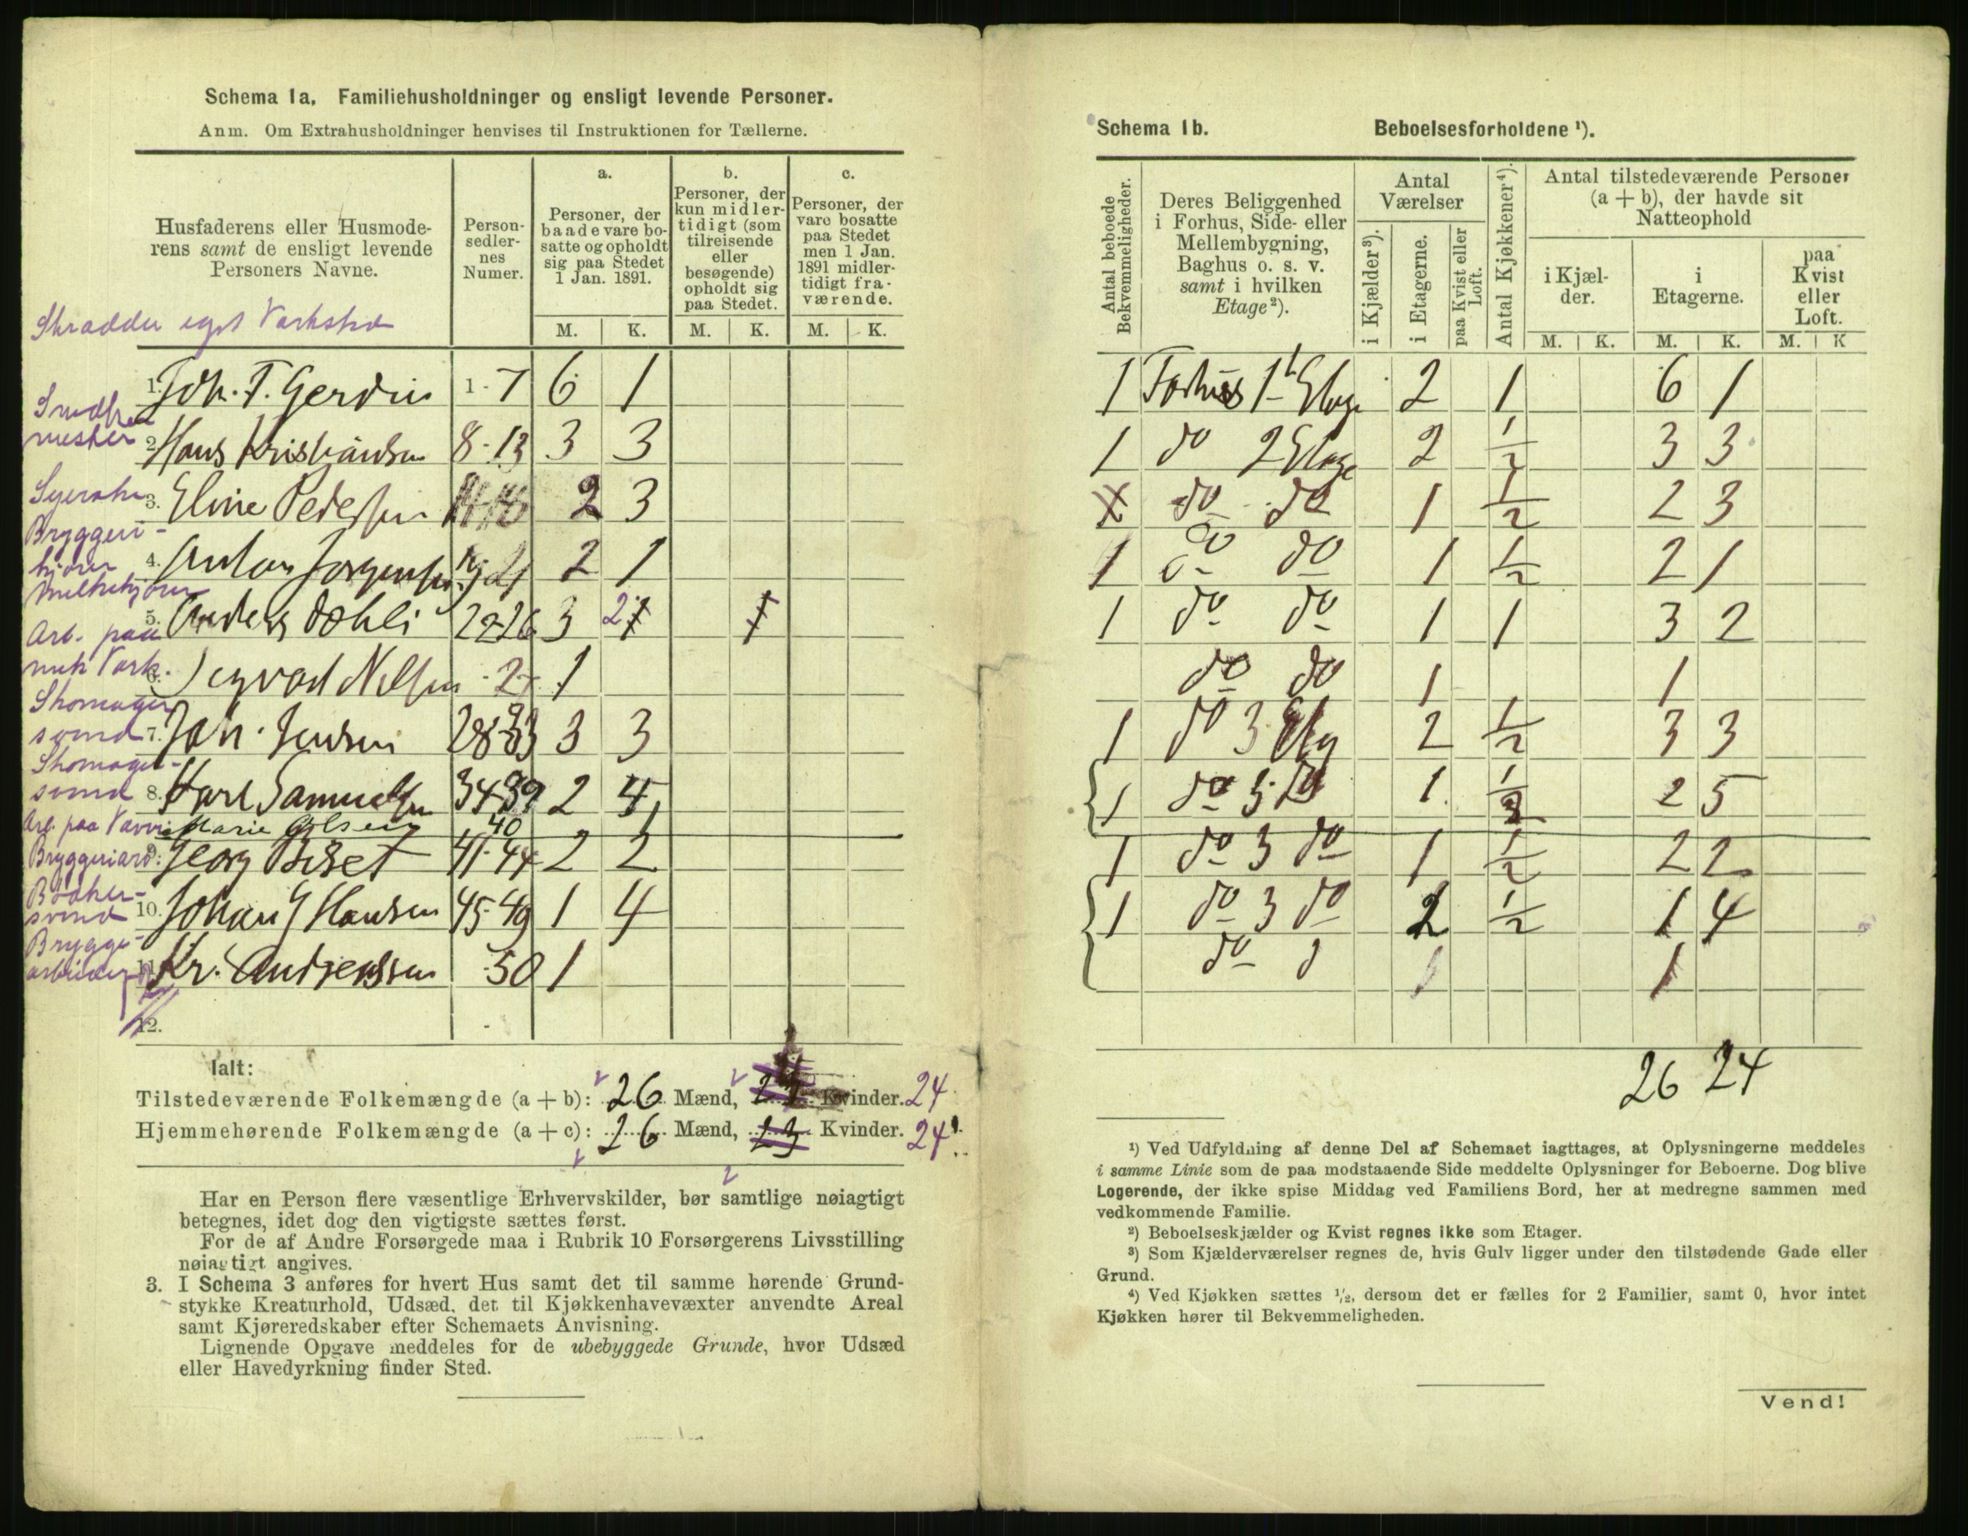 Schema 1a. Familiehusholdninger og ensligt levende Personer.
Anm. Om Extrahusholdninger henvises til Instruktionen for Tællerne.
Husfaderens eller Husmode-
rens samt de ensligt levende
Personers Navne.
Person-
sedler-
nes
Numer.
a.
Personer, der
baade vare bo-
satte og opholdt
sig paa Stedet
1 Jan. 1891.
b.
Personer, der
kun midler-
tidigt (som
tilreisende
eller
besøgende)
opholdt sig
paa Stedet.
c.
Personer, der
vare bosatte
paa Stedet
men 1 Jan.
1891 midler-
tidigt fra-
værende.
M. K. M. K. M. K.
Skrædder eget Værksted
1. Joh. T. Gerdin 1-7 6 1
mester
2. Hans Kristiansen 8-13 3 3
Syerske
3. Eline Pedersen 2 3
Bryggeri-
kjører
4. Anton Jørgensen 19-21 2 1
Melkekjører
5. Anders Dahli 22-26 3 2 1 1
Arb. paa
mek Værk.
6. Sigvad Nilsen 27 1
Skomager
svend
7. Joh. Jensen 28-33 3 3
Skomager-
svend
8. Karl Samuelsen 34-39 2 4
Arb. paa
Marie Olsen 40 1
Bryggeriarb:
9. Georg Biset 41-44 2 2
Bøkker-
svend
10. Johan G Hansen 45-49 1 4
Brygge-
arbeider
11. Kr. Andreassen 50 1
12.
Ialt:
Tilstedeværende Folkemængde (a + b): 26 Mænd, Kvinder. 24
Hjemmehørende Folkemængde (a + c): 26 Mænd, 23 Kvinder. 24
Har en Person flere væsentlige Erhvervskilder, bør samtlige nøiagtigt
betegnes, idet dog den vigtigste sættes først.
For de af Andre Forsørgede maa i Rubrik 10 Forsørgerens Livsstilling
nøiagtigt angives.
3. I Schema 3 anføres for hvert Hus samt det til samme hørende Grund-
stykke Kreaturhold, Udsæd, det til Kjøkkenhavevæxter anvendte Areal
samt Kjøreredskaber efter Schemaets Anvisning.
Lignende Opgave meddeles for de ubebyggede Grunde, hvor Udsæd
eller Havedyrkning finder Sted.
Schema 1b. Beboelsesforholdene ¹).
Antal beboede
Bekvemmeligheder.
Deres Beliggenhed
i Forhus, Side- eller
Mellembygning,
Baghus o. s. v.
samt i hvilken
Etage²).
Antal
Værelser
i Kjælder³).
i Etagerne.
paa Kvist eller
Loft.
Antal Kjøkkener⁴).
Antal tilstedeværende Personer
(a + b), der havde sit
Natteophold
i Kjæl-
der.
i
Etagerne.
paa
Kvist
eller
Loft.
M. K. M. K. M. K
1 Forhus 1 Etage 2 1 6 1
1 do 2 Etage 2 1/2 3 3
do do 1 1/2 2 3
1 do do 1 1/2 2 1
1 do do 1 1 3 2
do do 1 1
1 do 3 Etg 2 1/2 3 3
1 do 3 do 1 2 5
1 do 3 do 1 1/2 2 2
1 do 3 do 2 1/2 1 4
do 1 1
26 24
¹) Ved Udfyldning af denne Del af Schemaet iagttages, at Oplysningerne meddeles
i samme Linie som de paa modstaaende Side meddelte Oplysninger for Beboerne. Dog blive
Logerende, der ikke spise Middag ved Familiens Bord, her at medregne sammen med
vedkommende Familie.
²) Beboelseskjælder og Kvist regnes ikke som Etager.
³) Som Kjælderværelser regnes de, hvis Gulv ligger under den tilstødende Gade eller
Grund.
⁴) Ved Kjøkken sættes ¹/₂, dersom det er fælles for 2 Familier, samt 0, hvor intet
Kjøkken hører til Bekvemmeligheden.
Vend!